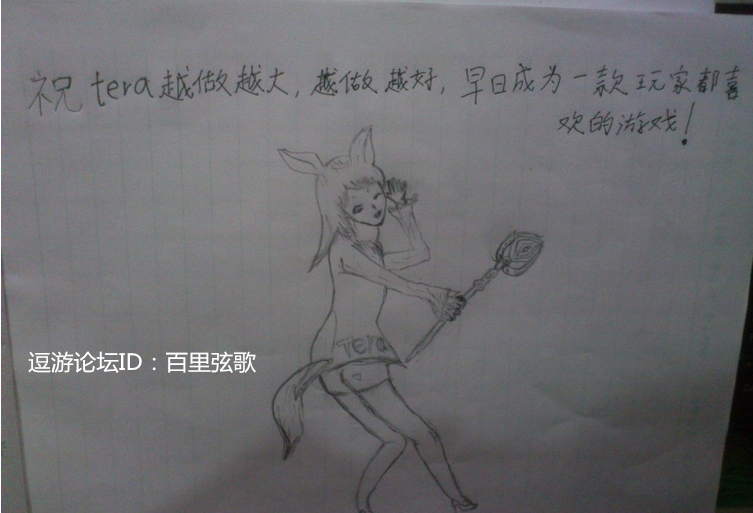 祝tera越做越大,越做越好,早日成为一款玩家都喜
欢的游戏!
Tera
逗游论坛ID：百里弦歌